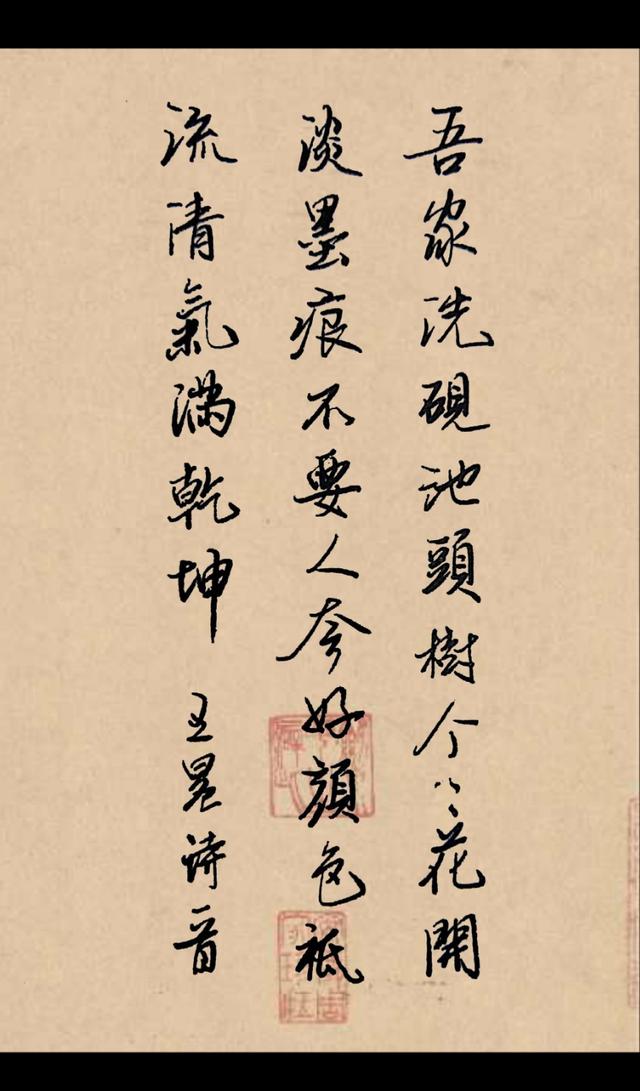 吾家洗硯池頭樹个々花開
淡墨痕不要人夸好顔色祗
流清氣滿乾坤 王冕詩一首